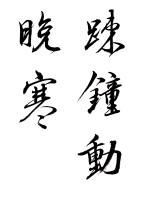 踈鐘動
晚寒